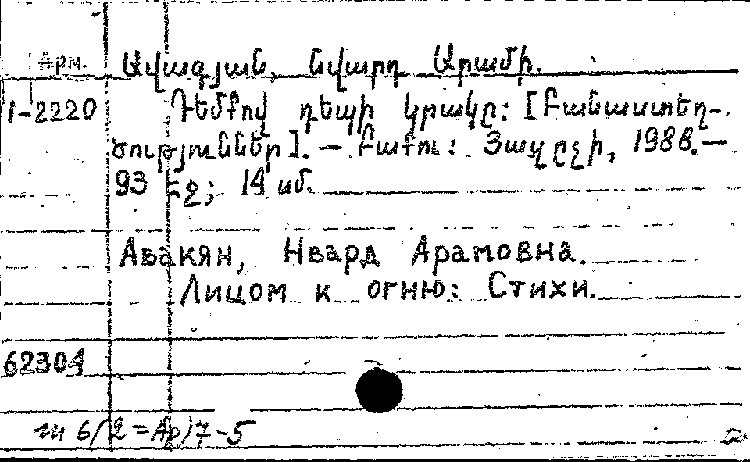 Арм.
Ավագյան, Նվարդ Արամի.
1-2220
Դեմքով դեպի կրակը: [Բանաստեղ-
ծություններ]. — Բաքու: Յազըչի, 1988. —
93 էջ; 14 սմ.
Авакян, Нвард Арамовна.
Лицом к огню: Стихи.
62304
6/2=Ар)7-5